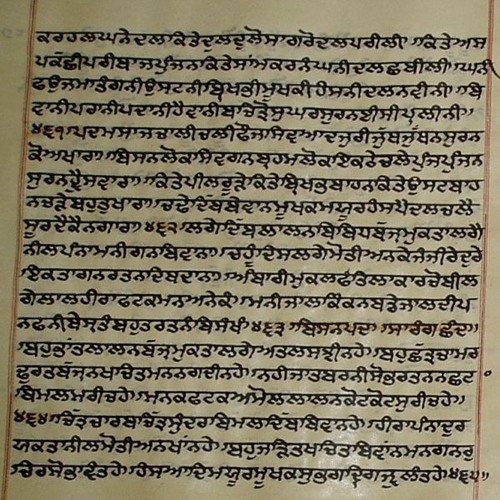 ਕਰਹਲਘਨੇਦਲਾਕਿਤੇਦੁਲਦੁਲੇਸਾਗਰੋਦਲਪਰੀਲੀ ਕਿਤੇਅਸ
ਪਕੱਛੀਪਰੀਬਾਜਪੁੰਜਨਕਿਤੇਸਾਂਮਕਰਨੰਘਨੀਦਲਛਬੀਲੀ ਘਨੀ
ਫਉਜਮਾਤੰਗਨੀਉਸਟਨੀਬ੍ਰਿਖਭੀਮੁਖਕੀਹੰਸਨੀਦਲਨਵੀਨੀ ਬਿ
ਵਾਨੀਪਰਾਨੀਪਦਾਨੀਹੈਵਾਨੀਬਾਚਿੜੋਸੁਘਰਸੁਰਨਈਸੀਪ੍ਰਲੀਨੀ
੪੬੧ ਪਦਮਸਾਜਚਾਲੀਚਲੀਫੌਜਾਸਿਵਆਦਜੁਰੀਜੁੱਬਜੁੱਬਨਸੁਰਨ
ਕੋਅਖਾਰਾ ਬਿਸਨਲੋਕਸਿਵਗਨਬ੍ਰਹਮਲੋਕਇਕਠੇਚਲੇਪੁੰਜਪੁੰਜਨ
ਸੁਰਨ੍ਹੈਸਵਾਰਾ ਕਿਤੇਪੀਲਰੂੜੇਕਿਤੇਬ੍ਰਿਖਭਬਾਹਨਕਿਤੇਉਸਟਬਾਹ
ਨਚੜੇਬਹੁਤੁਖਾਰਾ ਚਢੇਦਿੱਬਬਿਵਾਨਮੁਖਕਮਯੂਰਹੰਸਪੈਦਲਚਲੈ
ਸੂਰਦੈਕੈਨਗਾਰਾ ੪੬੨ ਲਗੇਦਿੱਬਲਾਲਨਬਿਬਿਧਬੱਜ੍ਰਮੁਕਤਾਲਗੇ
ਨੀਲਪੰਨਾਮਨੀਗਨਬਿਵਾਨਾ ਚਹੂੰਦਿਸਲਗੇਮੋਤੀਅਨਕੇਜੰਜੀਰੇਦੁਰੇ
ਇਕਤਾਗਨਰਤਨਦਿਬਦਾਨਾ ਅੰਬਾਰੀਮੁਕਲਫੰਤਿਲਾਕਾਰਚੋਬੀਲ
ਗੇਲਾਲਹੀਰਾਫਟਕਮਨਅਨੇਕੰ ਮਨੀਜਾਲਾਕਿੰਕਨਬਡੇਜਾਲਦੀਪ
ਨਫਨੀਬੇਸਤੰਬਹੁਤਰਤਨੰਬਿਸੰਖੰ ੪੬੩ ਬਿਸਨਪਦਾ ਸਾਰੰਗਛੰਦਾ
ਬਹੁਭਾਂਤਲਾਲਨਬੱਜ੍ਰਮੁਕਤਾਲਗੇਅਤਲਸਝੀਨਹੇ ਬਹੁਛੱਤ੍ਰਚਾਮਰ
ਛੁਰਤਬੱਜ੍ਰਨਖਾਚਿਤਮਨਨਗਦੀਨਹੇ ਨਹੀਜਾਤਬਰਨੀਸੋਭਰਤਨਨਛਟ
ਬਿਮਲਮਰੀਚਹੇ ਮਨਕਫਟਕਅਮੋਲਲਾਲਨਕੋਟਕੋਟਸੁਰੀਚਹੇ
੪੬੪ ਚਿੱਤ੍ਰਚਾਰਬਾਚਿੱਤ੍ਰਸੁੰਦਰਬਿਮਲਦਿੱਬਬਿਵਾਨਹੇ ਹੀਰਾਪੰਨਾਦੁਰ
ਯਕਤਾਨੀਲਮੋਤੀਅਨਖਾਂਨਹੇ ਬਹੁਜੜਿਤਖਚਿਤਬਿਵਾਂਨਮਨਗਨਰੁ
ਚਿਰਸੋਭਾਵੰਤਹੇ ਹੰਸਆਦਿਮਯੂਰਮੂਖਕਸੁਭਗਦ੍ਰਿਗਜੂਲੰਤਹੇ ੪੬੫